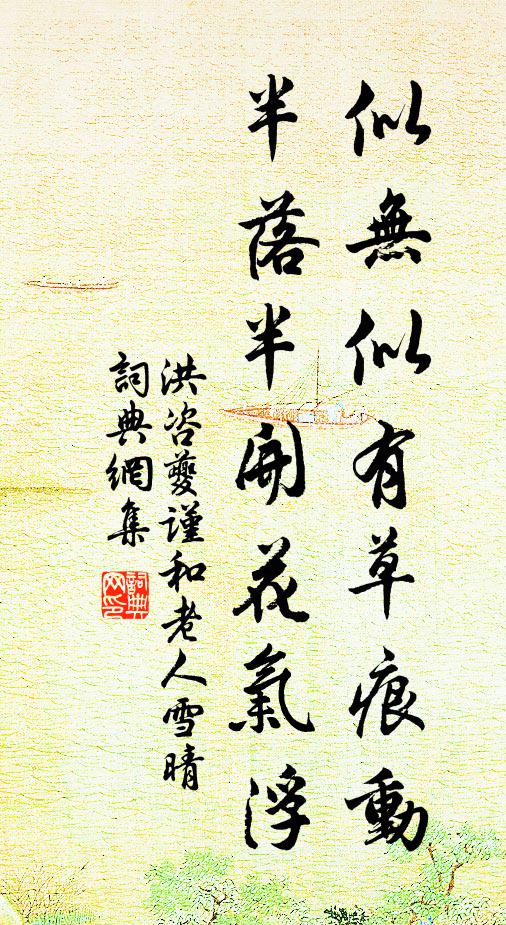 似無似有草痕動
半落半開花氣浮
洪咨夔謹和老人雪晴
詞典網集
詞典网印